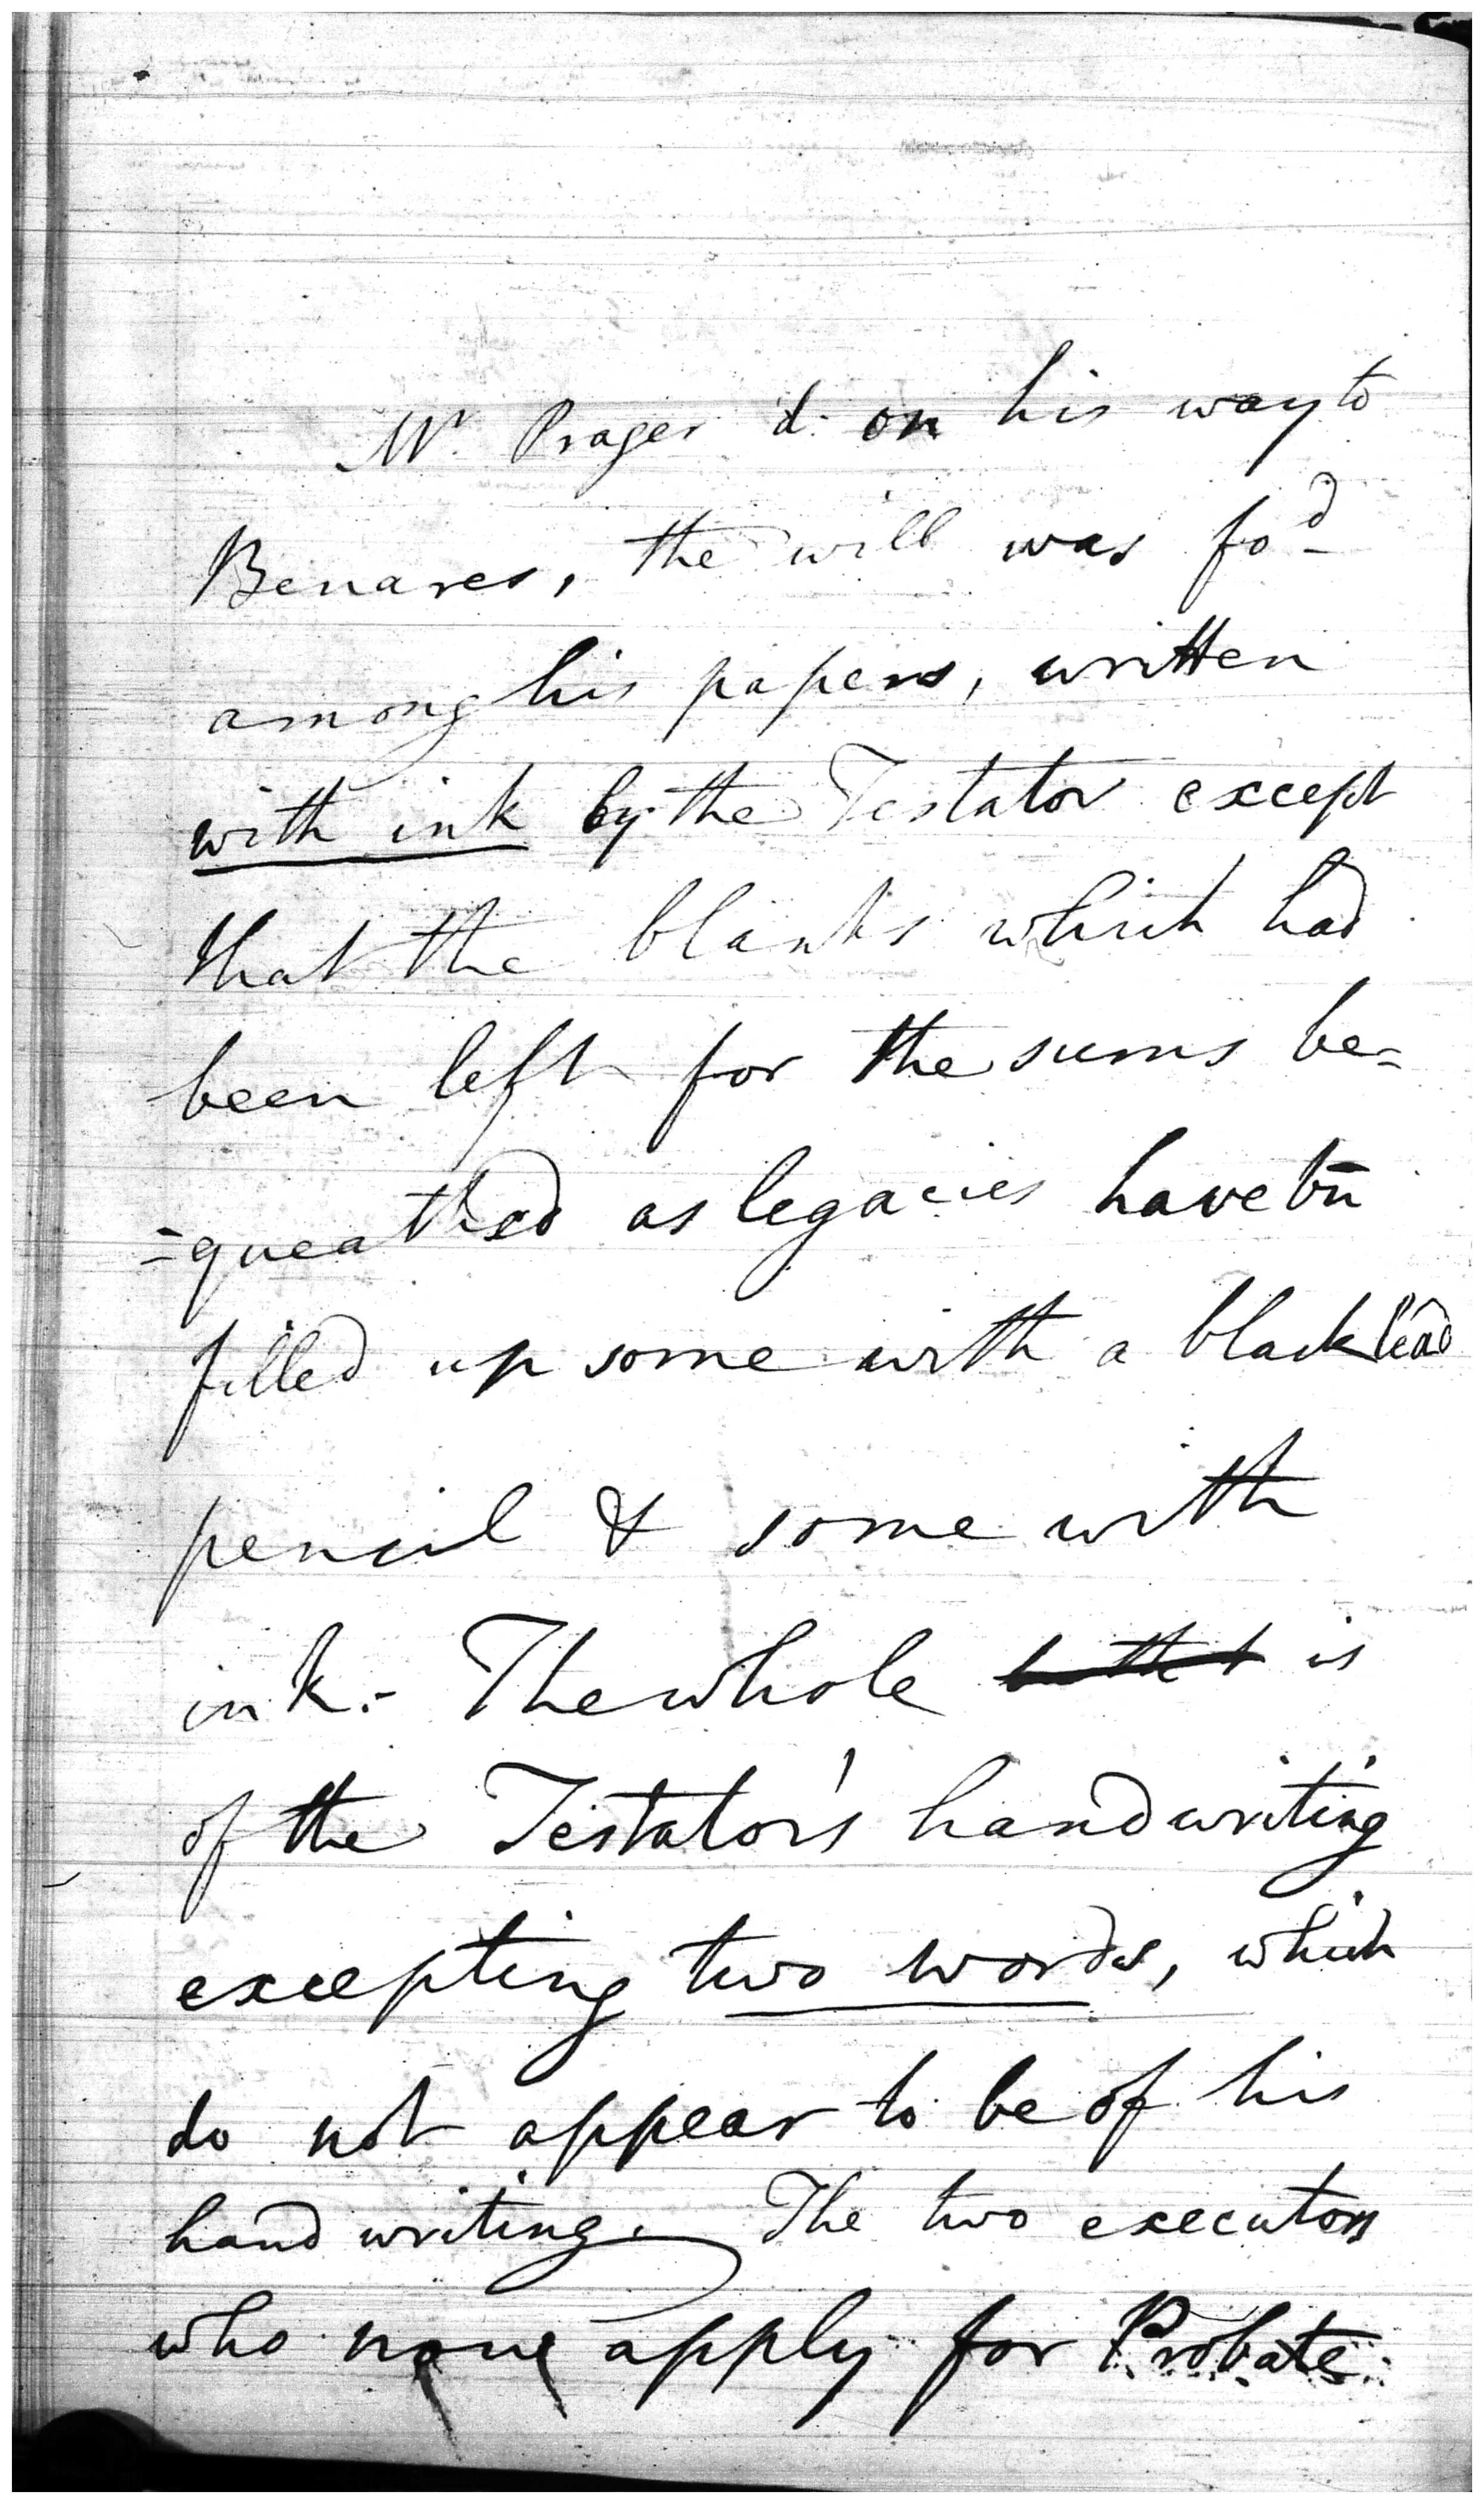 Mr. Prager d. on his way to
Benares, the will was fod
among his papers, written
with ink by the Testator except
that the blanks which had
been left for the sums be=
=queathed as legacies have bn
filled up some with a black lead
pencil & some with
ink.- The whole is
of the Testator's handwriting
excepting two words, which
do not appear to be of his
hand writing. The two executors
who apply for Probate